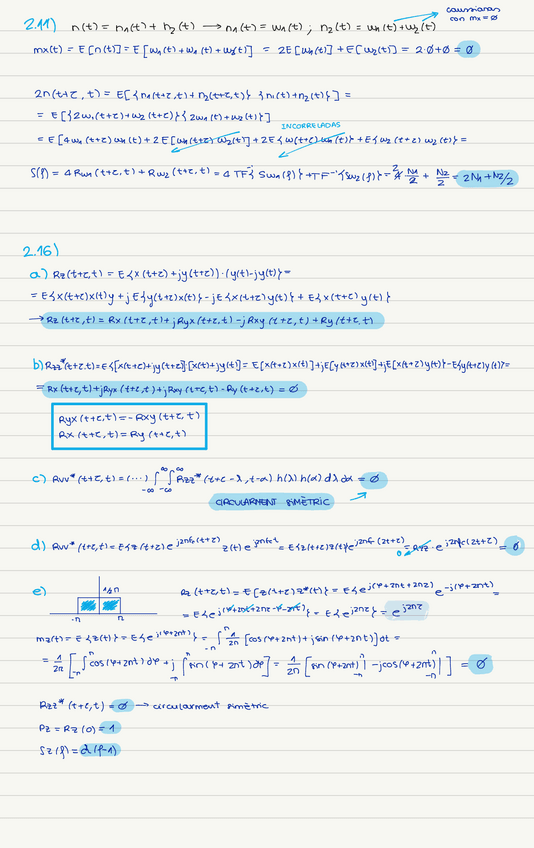 2.11) n(t) = n₁(t) + n₂(t) → n₁(t) = w₁(t) ; n₂(t) = w₁(t)+w₂(t)
gaussianas con mx=∅
mx(t) = E[n(t)] = E[w₁(t)+w₁(t)+w₂(t)] = 2E[w₁(t)] + E[w₂(t)] = 2·0+0 = ∅
2n(t+z,t) = E[{n₁(t+z,t)+n₂(t+z,t)} {n₁(t)+n₂(t)}] =
= E[{2w₁(t+z)+w₂(t+z)}{2w₁(t)+w₂(t)}]
INCORRELADAS
= E[4w₁(t+z)w₁(t) + 2E[w₁(t+z)w₂(t)] + 2E{w(t+z)w₁(t)} + E{w₂(t+z)w₂(t)} =
S(f) = 4Rw₁(t+z,t) + Rw₂(t+z,t) = 4TF⁻¹{Sw₁(f)} + TF⁻¹{Sw₂(f)} = 4 N₁/2 + N₂/2 = 2N₁+N₂/2
2.16)
a) Rz(t+z,t) = E{x(t+z)+jy(t+z)}·(y(t)-jy(t)} =
= E{x(t+z)x(t)y + jE{y(t+z)x(t)} - jE{x(t+z)y(t)} + E{x(t+z)y(t)}
→ Rz(t+z,t) = Rx(t+z,t) + jRyx(t+z,t) - jRxy(t+z,t) + Ry(t+z,t)
b) Rzz*(t+z,t) = E{[x(t+z)+jy(t+z)]·[x(t)+jy(t)] = E[x(t+z)x(t)]+jE[y(t+z)x(t)]+jE[x(t+z)y(t)}-E{y(t+z)y(t)} =
= Rx(t+z,t)+jRyx(t+z,t)+jRxy(t+z,t)-Ry(t+z,t) = ∅
Ryx(t+z,t) = -Rxy(t+z,t)
Rx(t+z,t) = Ry(t+z,t)
c) Rvv*(t+z,t) = (...) ∫∫ Rzz*(t+z-λ, t-α) h(λ) h(α) dλ dα = ∅
CIRCULARMENT SIMÈTRIC
d) Rvv*(t+z,t) = E{z(t+z) e^j2πfc(t+z) z(t) e^j2πfct = E{z(t+z)z(t)}e^j2πfc(2t+z) = Rzz·e^j2πfc(2t+z) = ∅
e) 1/2π -π π Rz(t+z,t) = E[z(t+z)z*(t)] = E{e^j(φ+2πt+2πz) e^-j(φ+2πt)} =
= E{e^j(φ+2πt+2πz-φ-2πt)} = E{e^j2πz} = e^j2πz
mz(t) = E{z(t)} = E{e^j(φ+2πt)} = ∫ 1/2π [cos(φ+2πt)+jsin(φ+2πt)]dt =
= 1/2π [∫cos(φ+2πt)dφ + j∫sin(φ+2πt)dφ] = 1/2π [sin(φ+2πt)| - jcos(φ+2πt)|] = ∅
Rzz*(t+z,t) = ∅ → circularment simètric
Pz = Rz(0) = 1
Sz(f) = d(f-1)